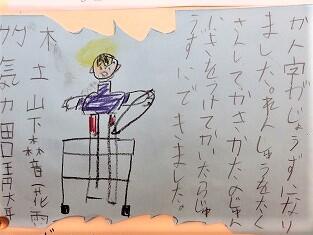 かん字がじょうずになり
ました。れんしゅうをたく
さんしてかきかたのじゅん
きをつけてかいたの
うずにできました。
木土山下森音花雨
竹気力田口青